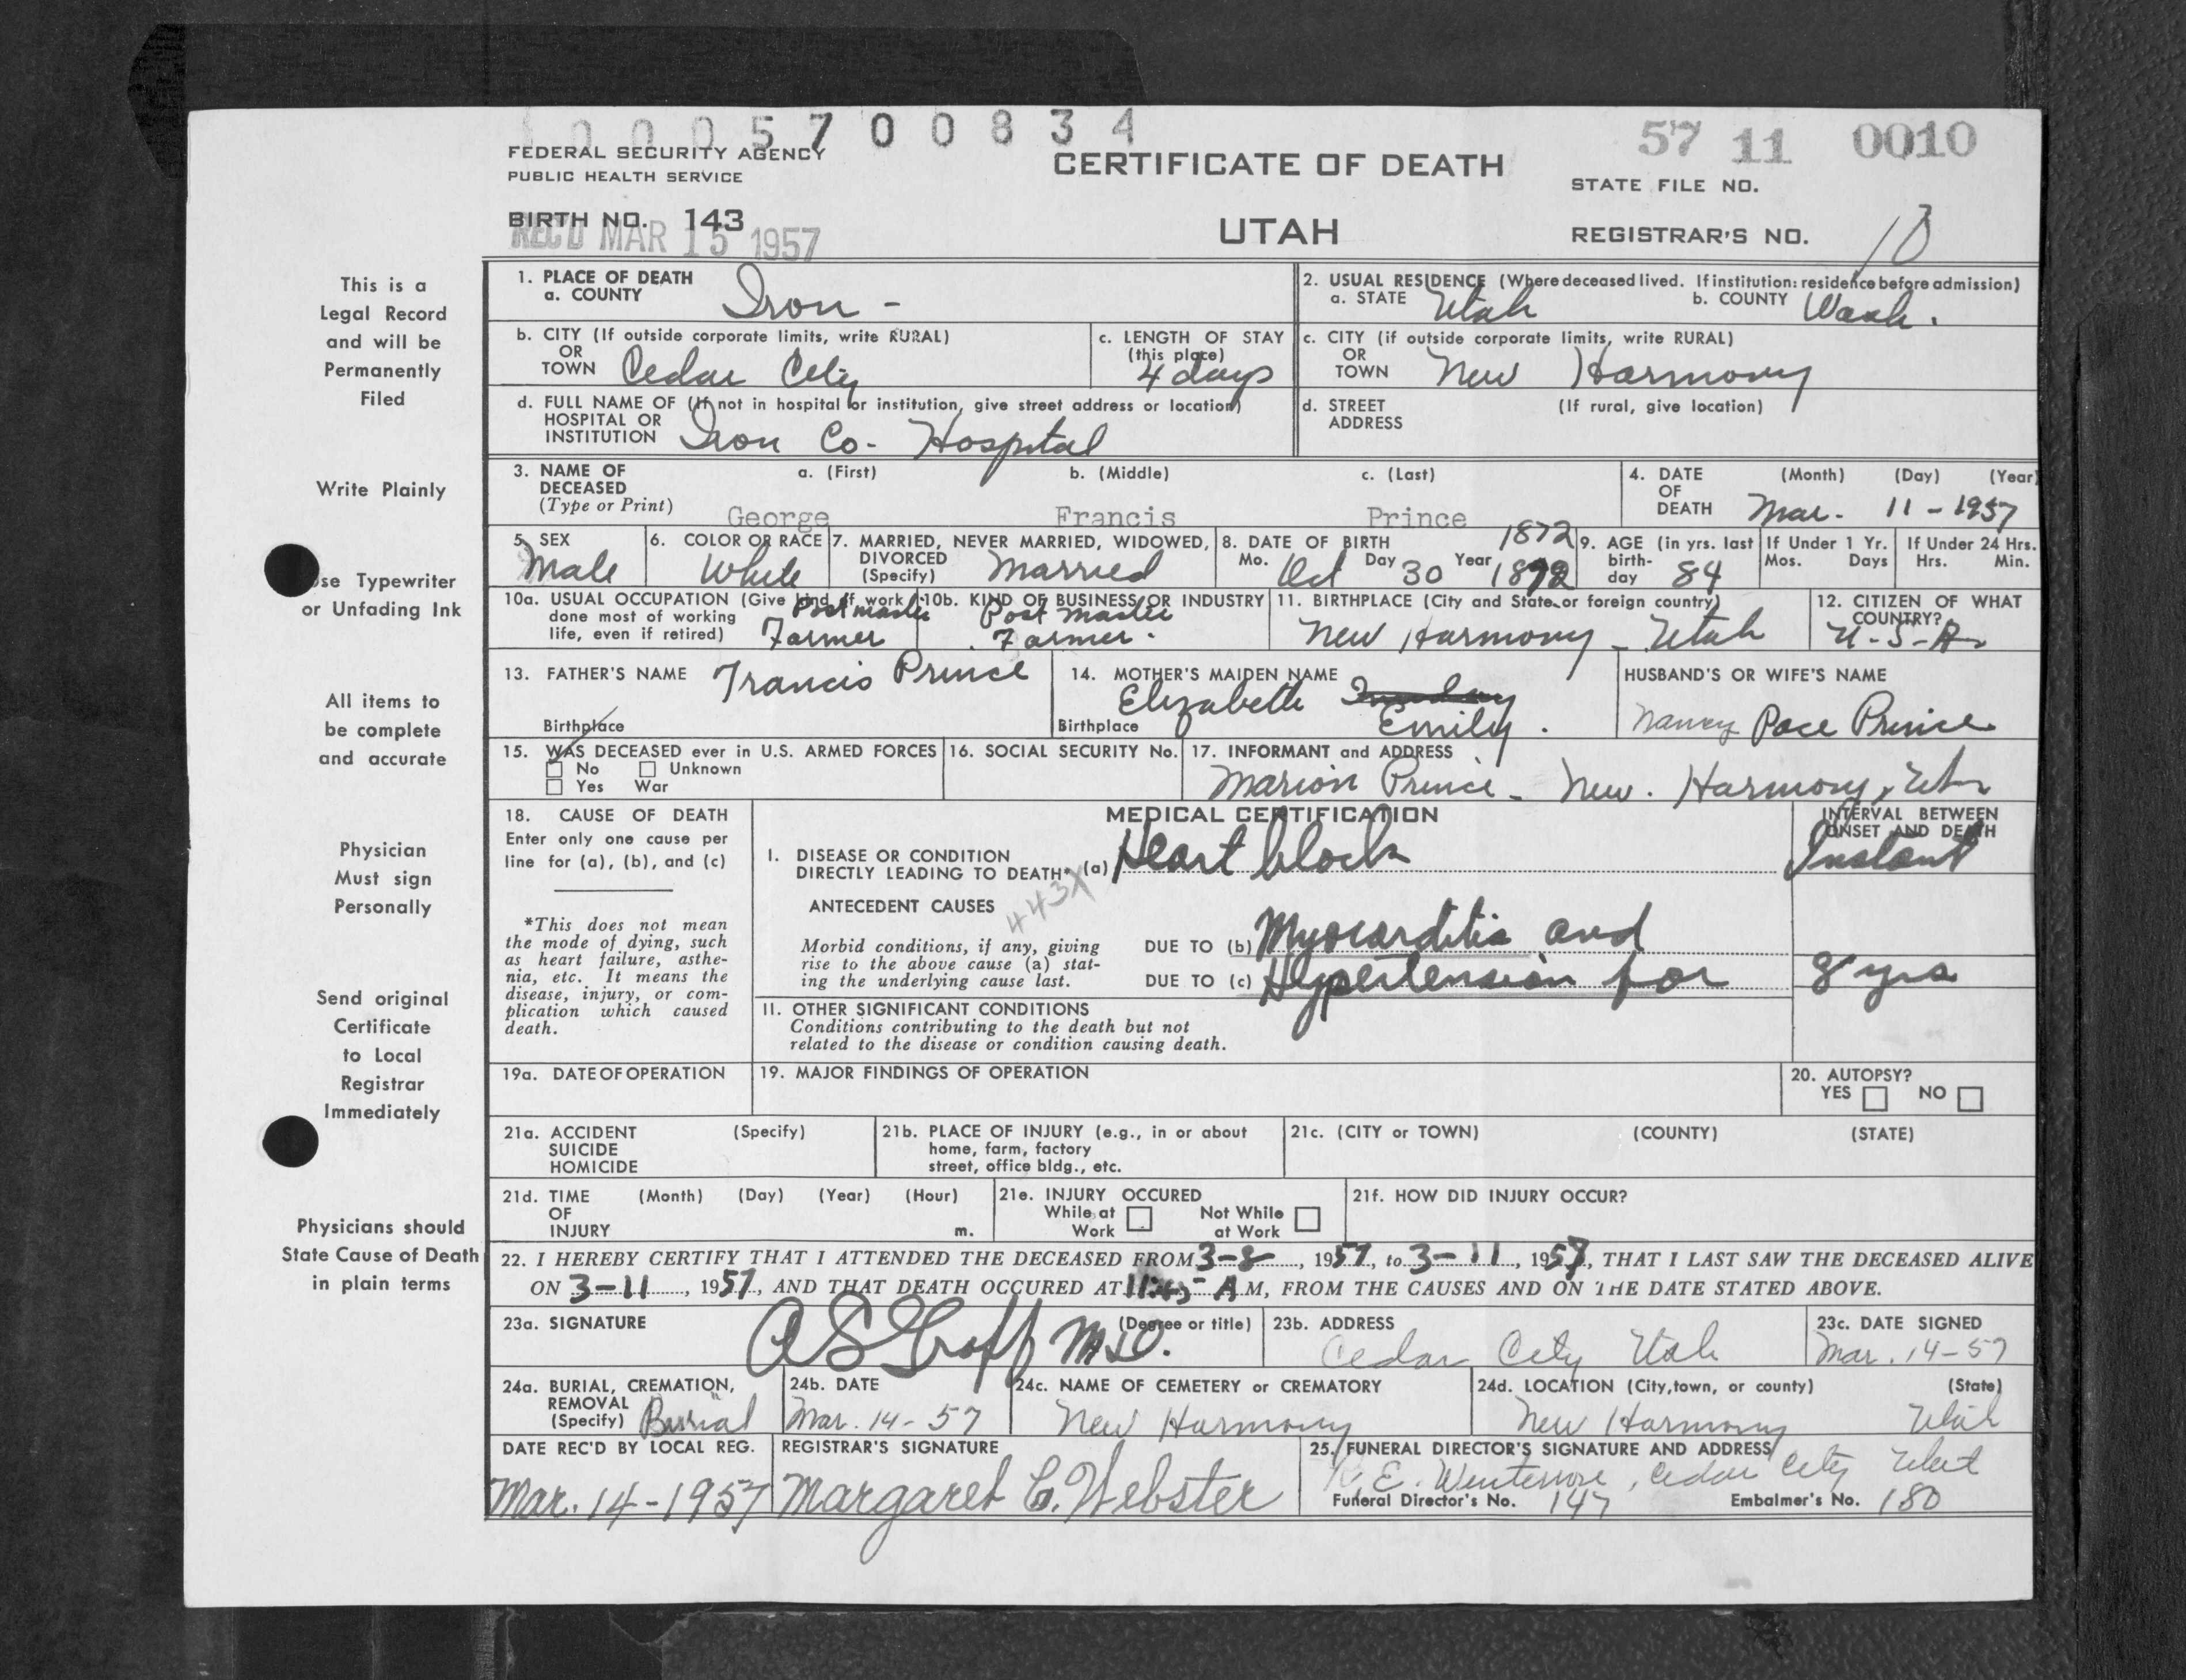 10005700834
57 11 0010
FEDERAL SECURITY AGENCY
PUBLIC HEALTH SERVICE
CERTIFICATE OF DEATH
STATE FILE NO.
BIRTH NO. 143
REC'D MAR 15 1957
UTAH
REGISTRAR'S NO. 10
This is a
Legal Record
and will be
Permanently
Filed
Write Plainly
se Typewriter
or Unfading Ink
All items to
be complete
and accurate
Physician
Must sign
Personally
Send original
Certificate
to Local
Registrar
Immediately
Physicians should
State Cause of Death
in plain terms
1. PLACE OF DEATH
a. COUNTY Iron -
2. USUAL RESIDENCE (Where deceased lived. If institution: residence before admission)
a. STATE Utah b. COUNTY Wash.
b. CITY (If outside corporate limits, write RURAL)
OR
TOWN Cedar City
c. LENGTH OF STAY
(this place)
4 days
c. CITY (if outside corporate limits, write RURAL)
OR
TOWN New Harmony
d. FULL NAME OF (If not in hospital or institution, give street address or location)
HOSPITAL OR
INSTITUTION Iron Co- Hospital
d. STREET (If rural, give location)
ADDRESS
3. NAME OF a. (First) b. (Middle) c. (Last)
DECEASED
(Type or Print) George Francis Prince
4. DATE (Month) (Day) (Year)
OF
DEATH Mar. 11 - 1957
5. SEX
Male
6. COLOR OR RACE
White
7. MARRIED, NEVER MARRIED, WIDOWED,
DIVORCED
(Specify) Married
8. DATE OF BIRTH 1872
Mo. Oct Day 30 Year 1872
9. AGE (in yrs. last
birth-
day 84
If Under 1 Yr.
Mos. Days
If Under 24 Hrs.
Hrs. Min.
10a. USUAL OCCUPATION (Give kind of work
done most of working
life, even if retired) Postmaster
Farmer
10b. KIND OF BUSINESS OR INDUSTRY
Post Master
Farmer.
11. BIRTHPLACE (City and State or foreign country)
New Harmony - Utah
12. CITIZEN OF WHAT
COUNTRY?
U-S-A
13. FATHER'S NAME Francis Prince
Birthplace
14. MOTHER'S MAIDEN NAME
Elizabeth
Birthplace Emily.
HUSBAND'S OR WIFE'S NAME
Nancy Pace Prince
15. WAS DECEASED ever in U.S. ARMED FORCES
No Unknown
Yes War
16. SOCIAL SECURITY No.
17. INFORMANT and ADDRESS
Marion Prince - New. Harmony, Utah
18. CAUSE OF DEATH
Enter only one cause per
line for (a), (b), and (c)
*This does not mean
the mode of dying, such
as heart failure, asthe-
nia, etc. It means the
disease, injury, or com-
plication which caused
death.
MEDICAL CERTIFICATION
INTERVAL BETWEEN
ONSET AND DEATH
I. DISEASE OR CONDITION
DIRECTLY LEADING TO DEATH* (a) Heart block Instant
443X
ANTECEDENT CAUSES
Morbid conditions, if any, giving
rise to the above cause (a) stat-
ing the underlying cause last.
DUE TO (b) Myocarditis and
DUE TO (c) Hypertension for 8 yrs
II. OTHER SIGNIFICANT CONDITIONS
Conditions contributing to the death but not
related to the disease or condition causing death.
19a. DATE OF OPERATION
19. MAJOR FINDINGS OF OPERATION
20. AUTOPSY?
YES NO
21a. ACCIDENT (Specify)
SUICIDE
HOMICIDE
21b. PLACE OF INJURY (e.g., in or about
home, farm, factory
street, office bldg., etc.
21c. (CITY or TOWN) (COUNTY) (STATE)
21d. TIME (Month) (Day) (Year) (Hour)
OF
INJURY m.
21e. INJURY OCCURED
While at Work
Not While at Work
21f. HOW DID INJURY OCCUR?
22. I HEREBY CERTIFY THAT I ATTENDED THE DECEASED FROM 3-8, 1957, to 3-11, 1957, THAT I LAST SAW THE DECEASED ALIVE
ON 3-11, 1957, AND THAT DEATH OCCURED AT 11:45 A M, FROM THE CAUSES AND ON THE DATE STATED ABOVE.
23a. SIGNATURE (Degree or title)
A S Graff M.D.
23b. ADDRESS
Cedar City Utah
23c. DATE SIGNED
Mar. 14-57
24a. BURIAL, CREMATION,
REMOVAL
(Specify) Burial
24b. DATE
Mar. 14-57
24c. NAME OF CEMETERY or CREMATORY
New Harmony
24d. LOCATION (City, town, or county) (State)
New Harmony Utah
DATE REC'D BY LOCAL REG.
Mar. 14-1957
REGISTRAR'S SIGNATURE
Margaret C. Webster
25. FUNERAL DIRECTOR'S SIGNATURE AND ADDRESS
E. Winterrose, Cedar City Utah
Funeral Director's No. 147 Embalmer's No. 180